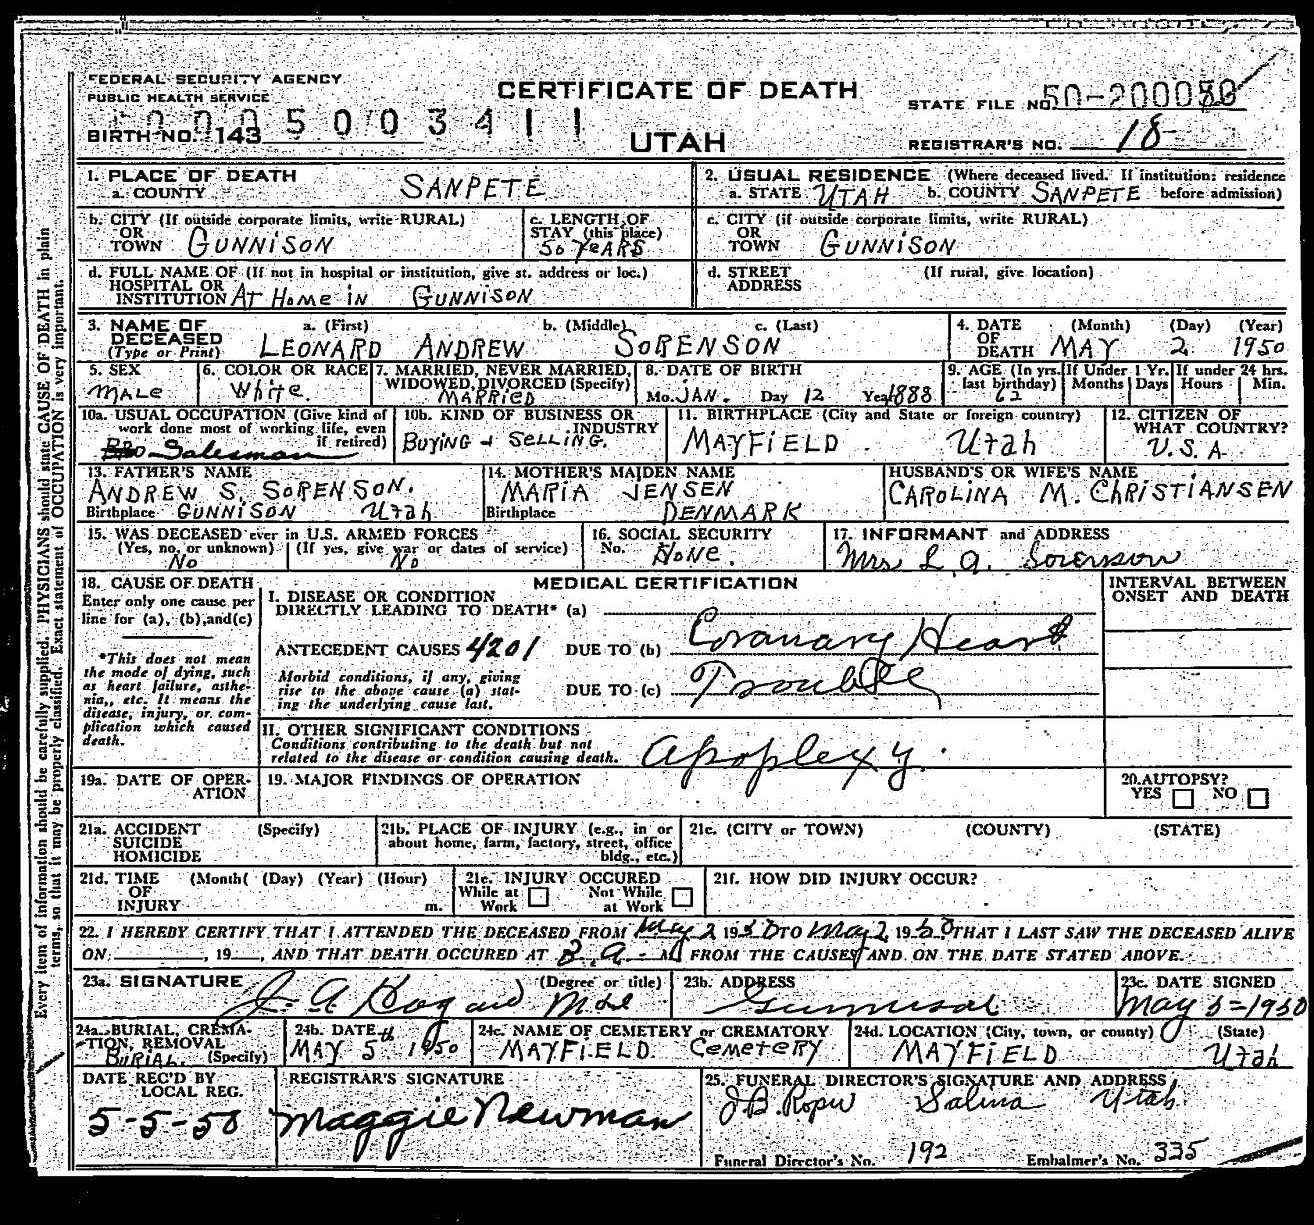 FEDERAL SECURITY AGENCY
PUBLIC HEALTH SERVICE
CERTIFICATE OF DEATH
STATE FILE NO.
BIRTH NO. 143
5003411
UTAH
REGISTRAR'S NO. 18
1. PLACE OF DEATH
a. COUNTY SANPETE
2. USUAL RESIDENCE (Where deceased lived. If institution: residence before admission)
a. STATE UTAH b. COUNTY SANPETE
b. CITY (If outside corporate limits, write RURAL)
OR
TOWN GUNNISON
c. LENGTH OF
STAY (this place)
50 YEARS
c. CITY (if outside corporate limits, write RURAL)
OR
TOWN GUNNISON
d. FULL NAME OF (If not in hospital or institution, give st. address or loc.)
HOSPITAL OR
INSTITUTION AT HOME IN GUNNISON
d. STREET (If rural, give location)
ADDRESS
3. NAME OF DECEASED (Type or Print)
a. (First) b. (Middle) c. (Last)
LEONARD ANDREW SORENSON
4. DATE OF DEATH (Month) (Day) (Year)
MAY 2 1950
5. SEX
MALE
6. COLOR OR RACE
White.
7. MARRIED, NEVER MARRIED,
WIDOWED, DIVORCED (Specify)
MARRIED
8. DATE OF BIRTH
Mo. JAN. Day 12 Year 1888
9. AGE (In yrs. last birthday)
62
If Under 1 Yr. Months Days
If under 24 hrs. Hours Min.
10a. USUAL OCCUPATION (Give kind of
work done most of working life, even
if retired)
Salesman
10b. KIND OF BUSINESS OR
INDUSTRY
BUYING + SELLING.
11. BIRTHPLACE (City and State or foreign country)
MAYFIELD Utah
12. CITIZEN OF
WHAT COUNTRY?
U.S.A
13. FATHER'S NAME
ANDREW S. SORENSON.
Birthplace GUNNISON Utah
14. MOTHER'S MAIDEN NAME
MARIA JENSEN
Birthplace DENMARK
HUSBAND'S OR WIFE'S NAME
CAROLINA M. CHRISTIANSEN
15. WAS DECEASED ever in U.S. ARMED FORCES
(Yes, no, or unknown) (If yes, give war or dates of service)
No No
16. SOCIAL SECURITY
No. None.
17. INFORMANT and ADDRESS
Mrs L A. Sorenson
18. CAUSE OF DEATH
Enter only one cause per
line for (a), (b), and (c)
*This does not mean
the mode of dying, such
as heart failure, asthe-
nia,, etc. It means the
disease, injury, or com-
plication which caused
death.
MEDICAL CERTIFICATION
INTERVAL BETWEEN
ONSET AND DEATH
I. DISEASE OR CONDITION
DIRECTLY LEADING TO DEATH* (a)
ANTECEDENT CAUSES 4201 DUE TO (b) Coronary Heart
Morbid conditions, if any, giving
rise to the above cause (a) stat-
ing the underlying cause last.
DUE TO (c) Trouble
II. OTHER SIGNIFICANT CONDITIONS
Conditions contributing to the death but not
related to the disease or condition causing death.
Apoplexy.
19a. DATE OF OPER-
ATION
19. MAJOR FINDINGS OF OPERATION
20. AUTOPSY?
YES NO
21a. ACCIDENT (Specify)
SUICIDE
HOMICIDE
21b. PLACE OF INJURY (e.g., in or
about home, farm, factory, street, office
bldg., etc.)
21c. (CITY or TOWN) (COUNTY) (STATE)
21d. TIME (Month( (Day) (Year) (Hour)
OF
INJURY m.
21e. INJURY OCCURED
While at Work Not While at Work
21f. HOW DID INJURY OCCUR?
22. I HEREBY CERTIFY THAT I ATTENDED THE DECEASED FROM May 2 1950 TO May 2, 1950 THAT I LAST SAW THE DECEASED ALIVE
ON , 19 , AND THAT DEATH OCCURED AT 3. A M FROM THE CAUSES AND ON THE DATE STATED ABOVE.
23a. SIGNATURE (Degree or title)
J. A
23b. ADDRESS
Gunnison
23c. DATE SIGNED
May 5-1950
24a. BURIAL, CREMA-
TION, REMOVAL
(Specify)
BURIAL.
24b. DATE
MAY 5th 1950
24c. NAME OF CEMETERY or CREMATORY
MAYFIELD CEMETERY
24d. LOCATION (City, town, or county) (State)
MAYFIELD Utah
DATE REC'D BY
LOCAL REG.
5-5-50
REGISTRAR'S SIGNATURE
Maggie Newman
25. FUNERAL DIRECTOR'S SIGNATURE AND ADDRESS
J B. Roper Salina Utah.
Funeral Director's No. 192 Embalmer's No. 335
Every item of information should be carefully supplied. PHYSICIANS should state CAUSE OF DEATH in plain
terms, so that it may be properly classified. Exact statement of OCCUPATION is very important.